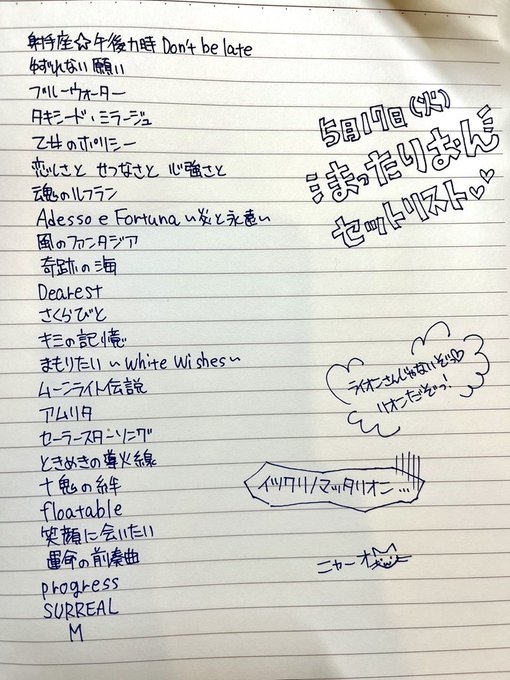 射手座☆午後九時 Don't be late
ゆずれない願い
ブルーウォーター
タキシード・ミラージュ
乙女のポリシー
恋しさと せつなさと 心強さと
魂のルフラン
Adesso e Fortuna〜炎と永遠〜
風のファンタジア
奇跡の海
Dearest
さくらびと
キミの記憶
まもりたい〜White Wishes〜
ムーンライト伝説
アムリタ
セーラースターソング
ときめきの導火線
十鬼の絆
floatable
笑顔に会いたい
運命の前奏曲
progress
SURREAL
M
5月17日(火)
まったりおん
セットリスト♡♡
ライオンさんじゃないぞっ♡
リオンだぞっ!
イツワリノマッタリオン…
ニャーオ